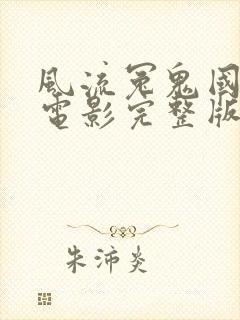 風流冤鬼國
電影完整版
朱沛炎